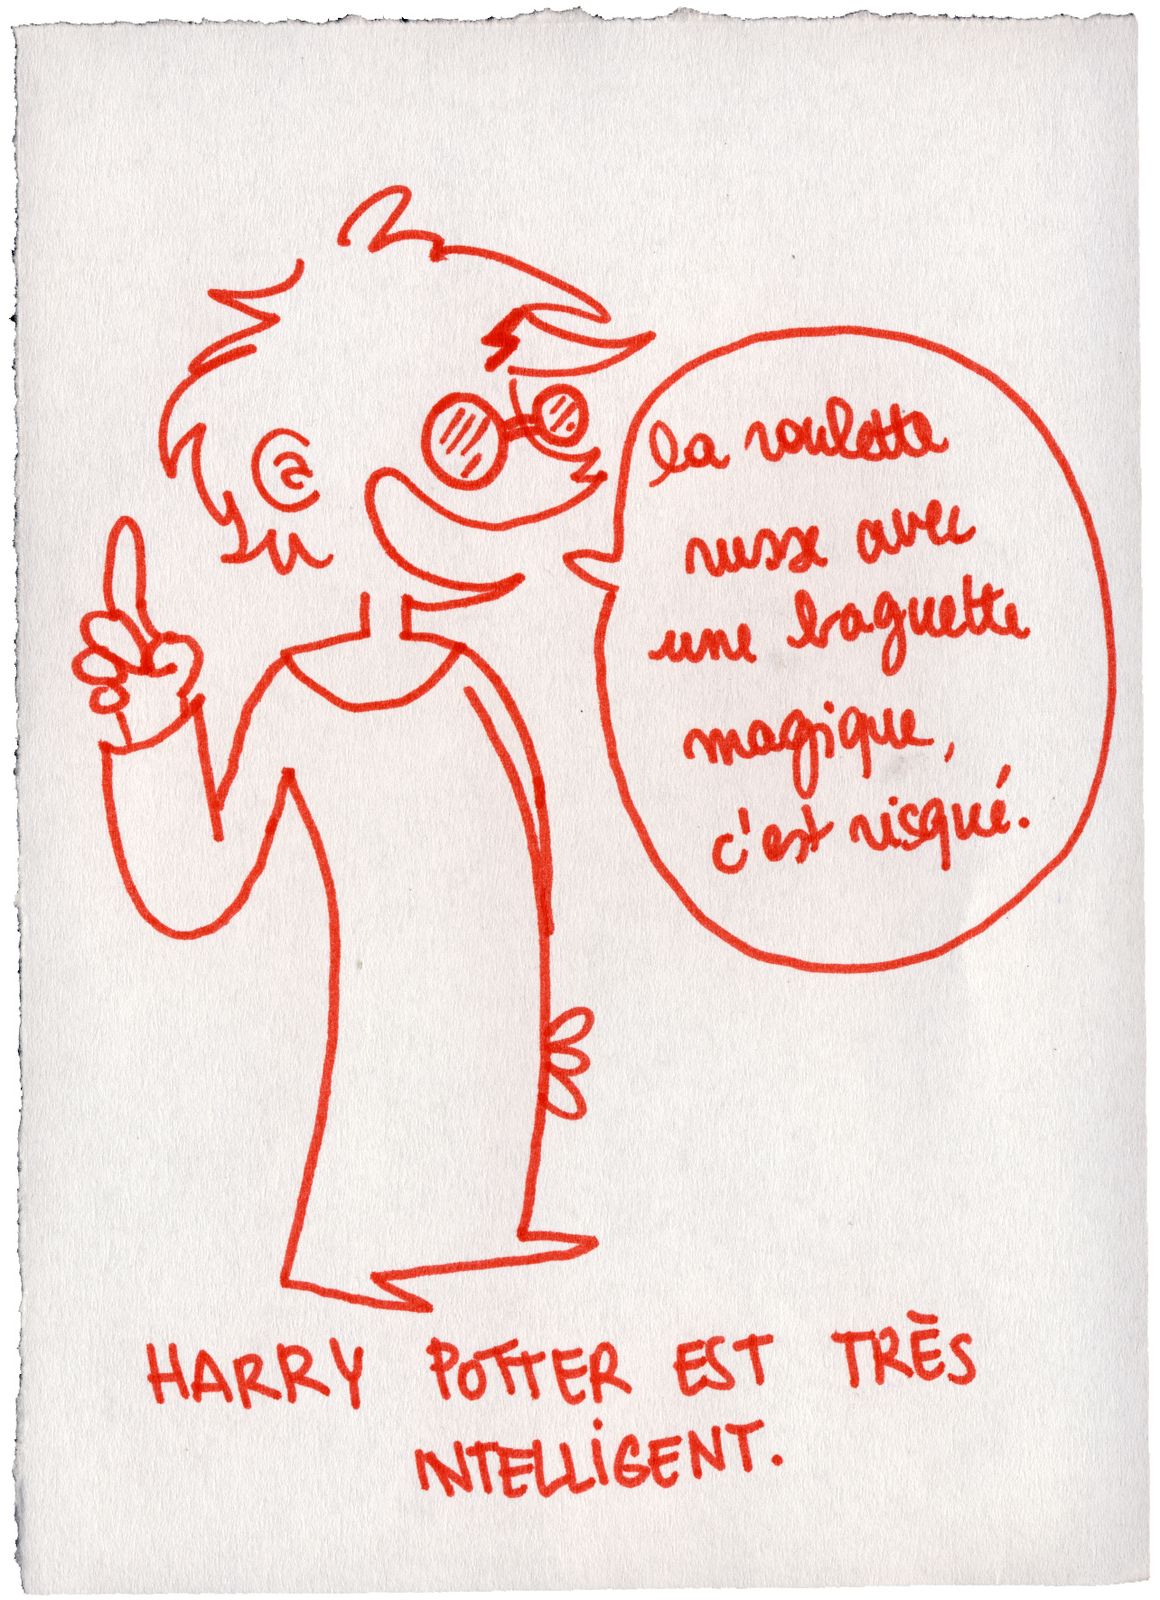 la roulette
russe avec
une baguette
magique,
c'est risqué.
HARRY POTTER EST TRÈS
INTELLIGENT.